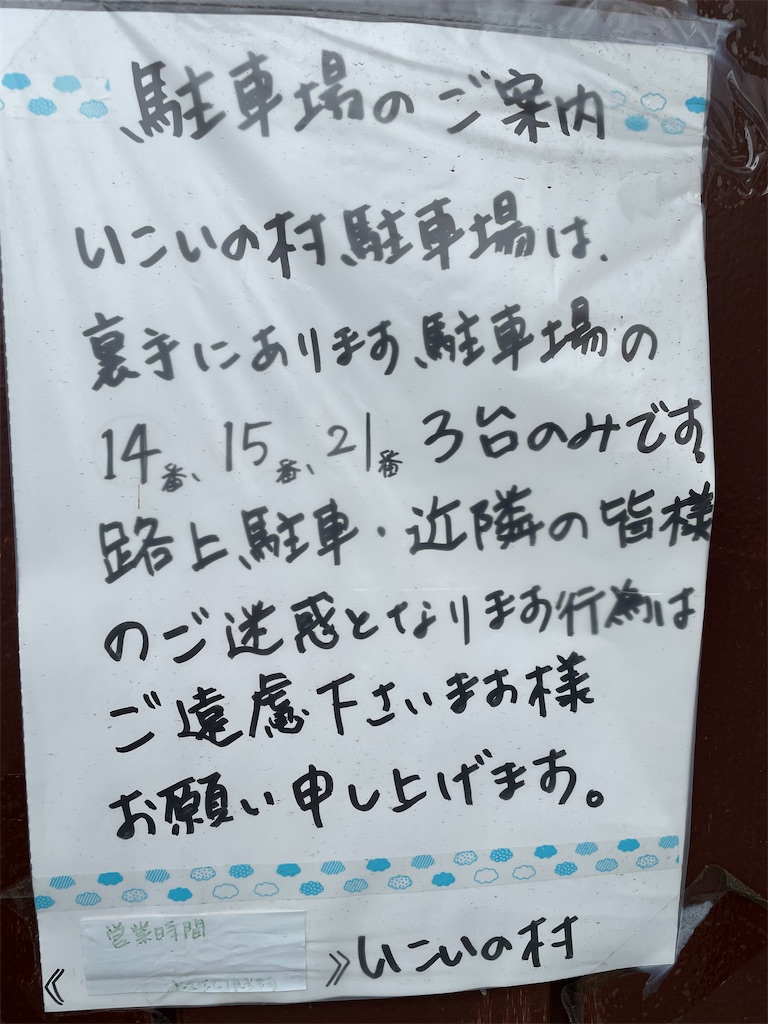 駐車場のご案内
いこいの村駐車場は、
裏手にあります駐車場の
14番、15番、21番 3台のみです。
路上駐車・近隣の皆様
のご迷惑となります行為は
ご遠慮下さいます様
お願い申し上げます。
営業時間
《 》いこいの村